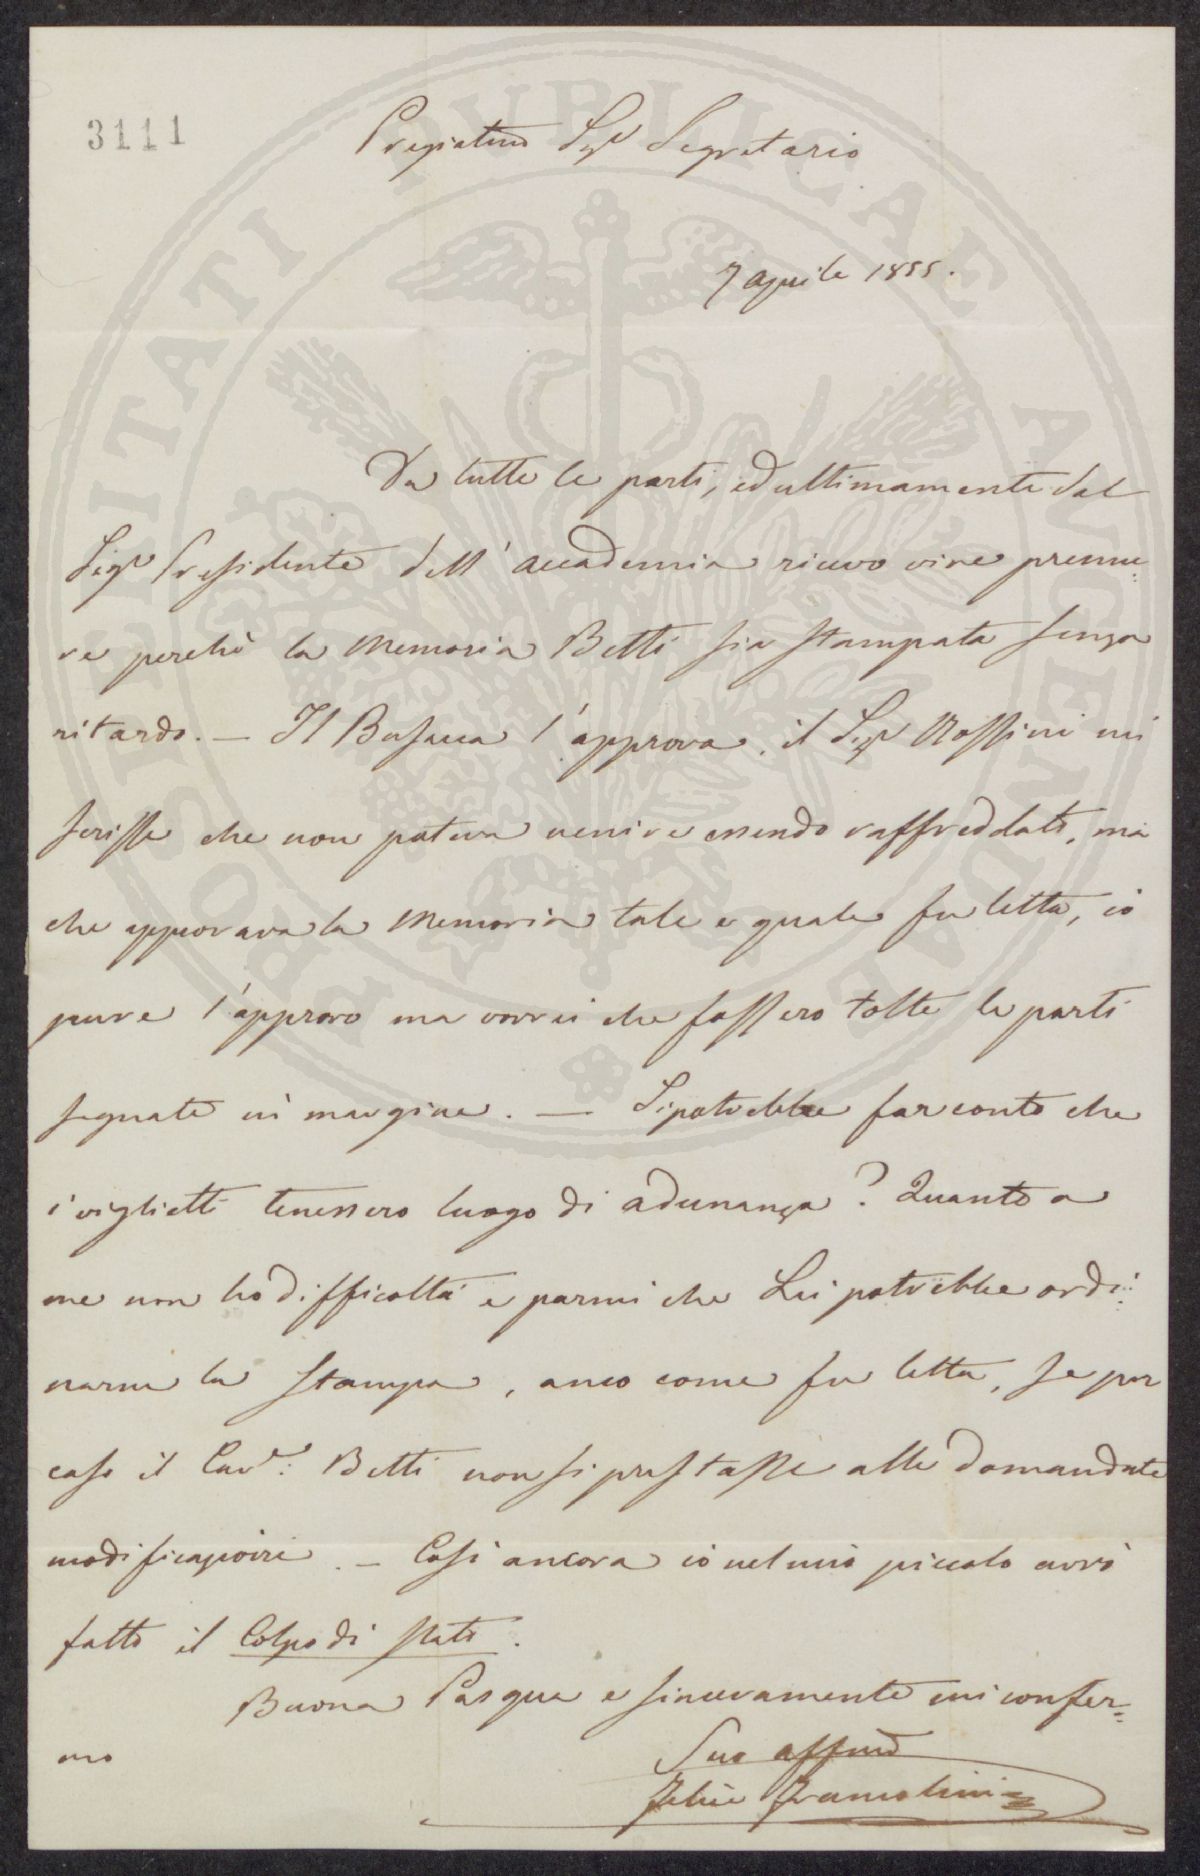 3111
Pregiatmo Sigr Segretario
7 aprile 1855.
Da tutte le parti, ed ultimamente dal
Sigr Presidente dell' Accademia ricevo vive premu:
re perchè la Memoria Betti sia stampata senza
ritardo. — Il Busacca l'approva, il Sigr Rossini mi
scrisse che non poteva venire essendo raffreddato, ma
che approvava la Memoria tale e quale fu letta, io
pure l'approvo ma vorrei che fossero tolte le parti
segnate in margine. — Si potrebbe far conto che
i viglietti tenessero luogo di adunanza? Quanto a
me non ho difficoltà e parmi che Lei potrebbe ordi:
narne la stampa, anco come fu letta, se per
caso il Cavr: Betti non si prestasse alle domandate
modificazioni. — Così ancora io nel mio piccolo avrò
fatto il Colpo di stato.
Buona Pasqua e sinceramente mi confer=
mo
Suo affmo
Felice Francolini
PROSPERITATI PVBLICAE AVGENDAE